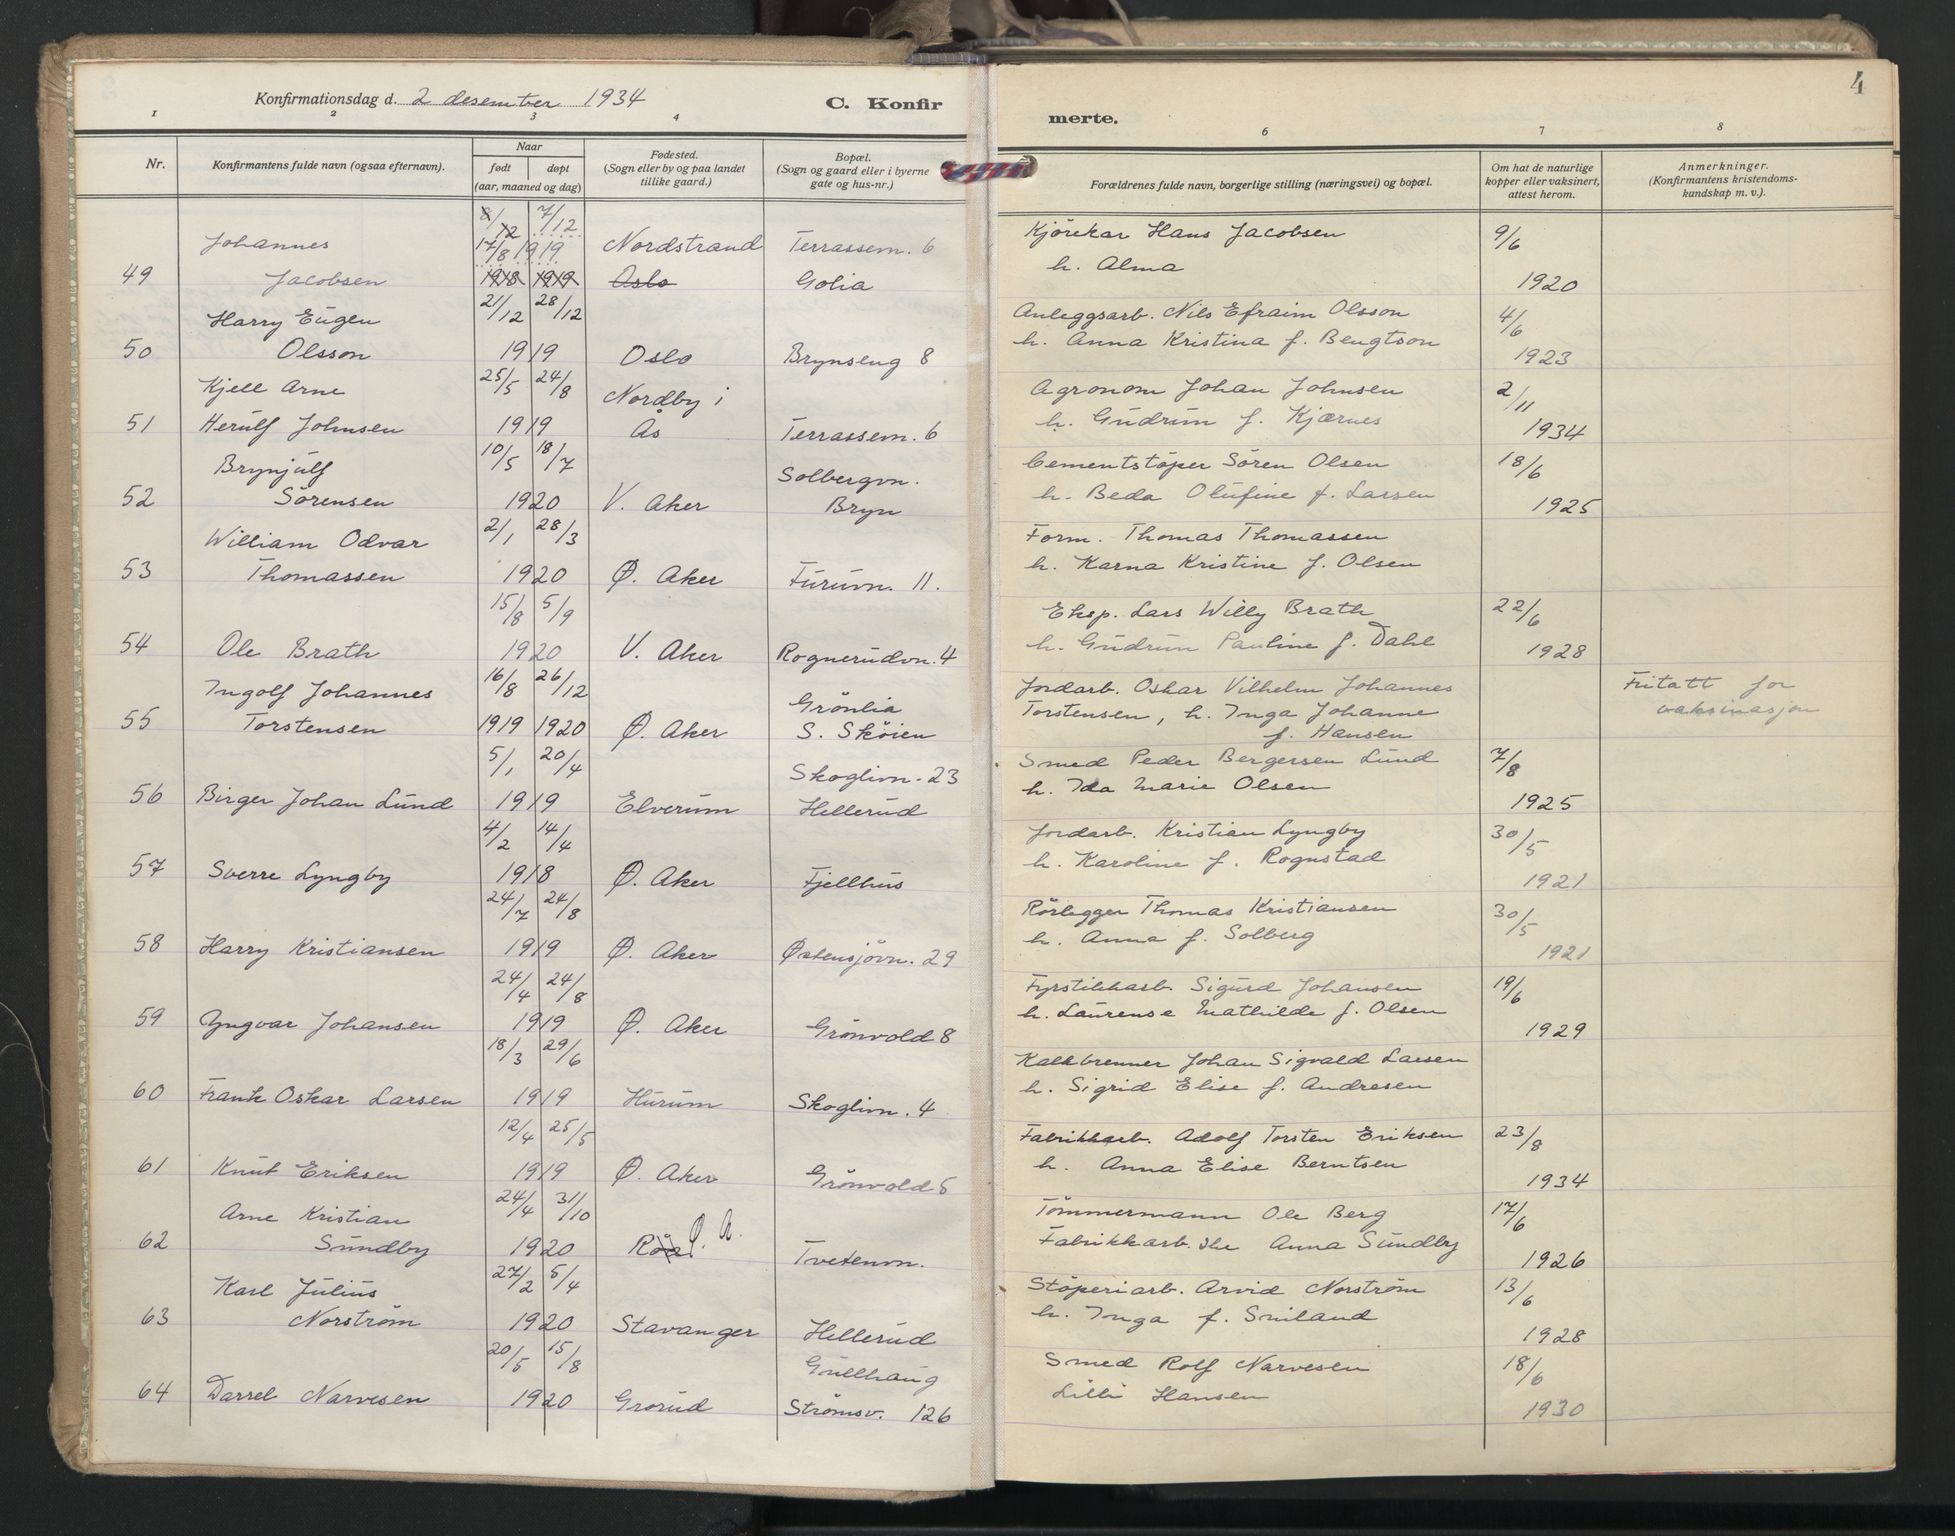 4
Konfirmationsdag d. 2 desember 1934
C. Konfir
merte.
1 2 3 4 6 7 8
Nr.
Konfirmantens fulde navn (ogsaa efternavn).
Naar
født døpt
(aar, maaned og dag)
Fødested.
(Sogn eller by og paa landet
tillike gaard.)
Bopæl.
(Sogn og gaard eller i byerne
gate og hus-nr.)
Forældrenes fulde navn, borgerlige stilling (næringsvei) og bopæl.
Om hat de naturlige
kopper eller vaksinert,
attest herom.
Anmerkninger.
(Konfirmantens kristendoms-
kundskap m. v.).
8/12 7/12
Johannes 17/8 1919 Nordstrand Terrassem. 6 Kjörekar Hans Jacobsen 9/6
49 Jacobsen 1918 1919 Oslo Golia h. Alma 1920
Harry Eugen 21/12 28/12 Anleggsarb. Nils Efraim Olsson 4/6
50 Olsson 1919 Oslo Brynseng 8 h. Anna Kristina f. Bengtson 1923
Kjell Arne 25/5 24/8 Nordby i Agronom Johan Johnsen 2/11
51 Herulf Johnsen 1919 Ås Terrassem. 6 h. Gudrun f. Kjærnes 1934
Brynjulf 10/5 18/7 Solbergvn. Cementstöper Sören Olsen 18/6
52 Sörensen 1920 V. Aker Bryn h. Beda Olufine f. Larsen 1925
William Odvar 2/1 28/3 Form. Thomas Thomassen
53 Thomassen 1920 Ø. Aker Furuvn. 11. h. Karna Kristine f. Olsen
15/8 5/9 Eksp. Lars Willy Brath 22/6
54 Ole Brath 1920 V. Aker Rognerudvn. 4 h. Gudrun Pauline f. Dahl 1928
Ingolf Johannes 16/8 26/12 Grönlia Jordarb. Oskar Vilhelm Johannes Fritatt for
55 Torstensen 1919 1920 Ø. Aker S. Sköien Torstensen, h. Inga Johanne vaksinasjon
f. Hansen
5/1 20/4 Skoglivn. 23 Smed Peder Bergersen Lund 7/8
56 Birger Johan Lund 1919 Elverum Hellerud h. Ida Marie Olsen 1925
4/2 14/4 Jordarb. Kristian Lyngby 30/5
57 Sverre Lyngby 1918 Ø. Aker Fjellhus h. Karoline f. Rognstad 1921
24/7 24/8 Rörlegger Thomas Kristiansen 30/5
58 Harry Kristiansen 1919 Ø. Aker Østensjövn. 29 h. Anna f. Solberg 1921
24/4 24/8 Fyrstikkarb. Sigurd Johansen 19/6
59 Yngvar Johansen 1919 Ø. Aker Grönvold 8 h. Laurense Mathilde f. Olsen 1929
18/3 29/6 Kalkbrenner Johan Sigvald Larsen
60 Frank Oskar Larsen 1919 Hurum Skoglivn. 4 h. Sigrid Elise f. Andresen
12/4 25/5 Fabrikkarb. Adolf Torsten Eriksen 23/8
61 Knut Eriksen 1919 Ø. Aker Grönvold 5 h. Anna Elise Berntsen 1934
Arne Kristian 24/4 31/10 Ø. A. Tömmermann Ole Berg 17/6
62 Sundby 1920 Röa Tvetenvn. Fabrikkarb.ske Anna Sundby 1926
Karl Julius 27/2 5/4 Stöperiarb. Arvid Norström 13/6
63 Norström 1920 Stavanger Hellerud h. Inga f. Smiland 1928
20/5 15/8 Gullhaug Smed Rolf Narvesen 18/6
64 Darrel Narvesen 1920 Grorud Strömsv. 126 Lilli Hansen 1930